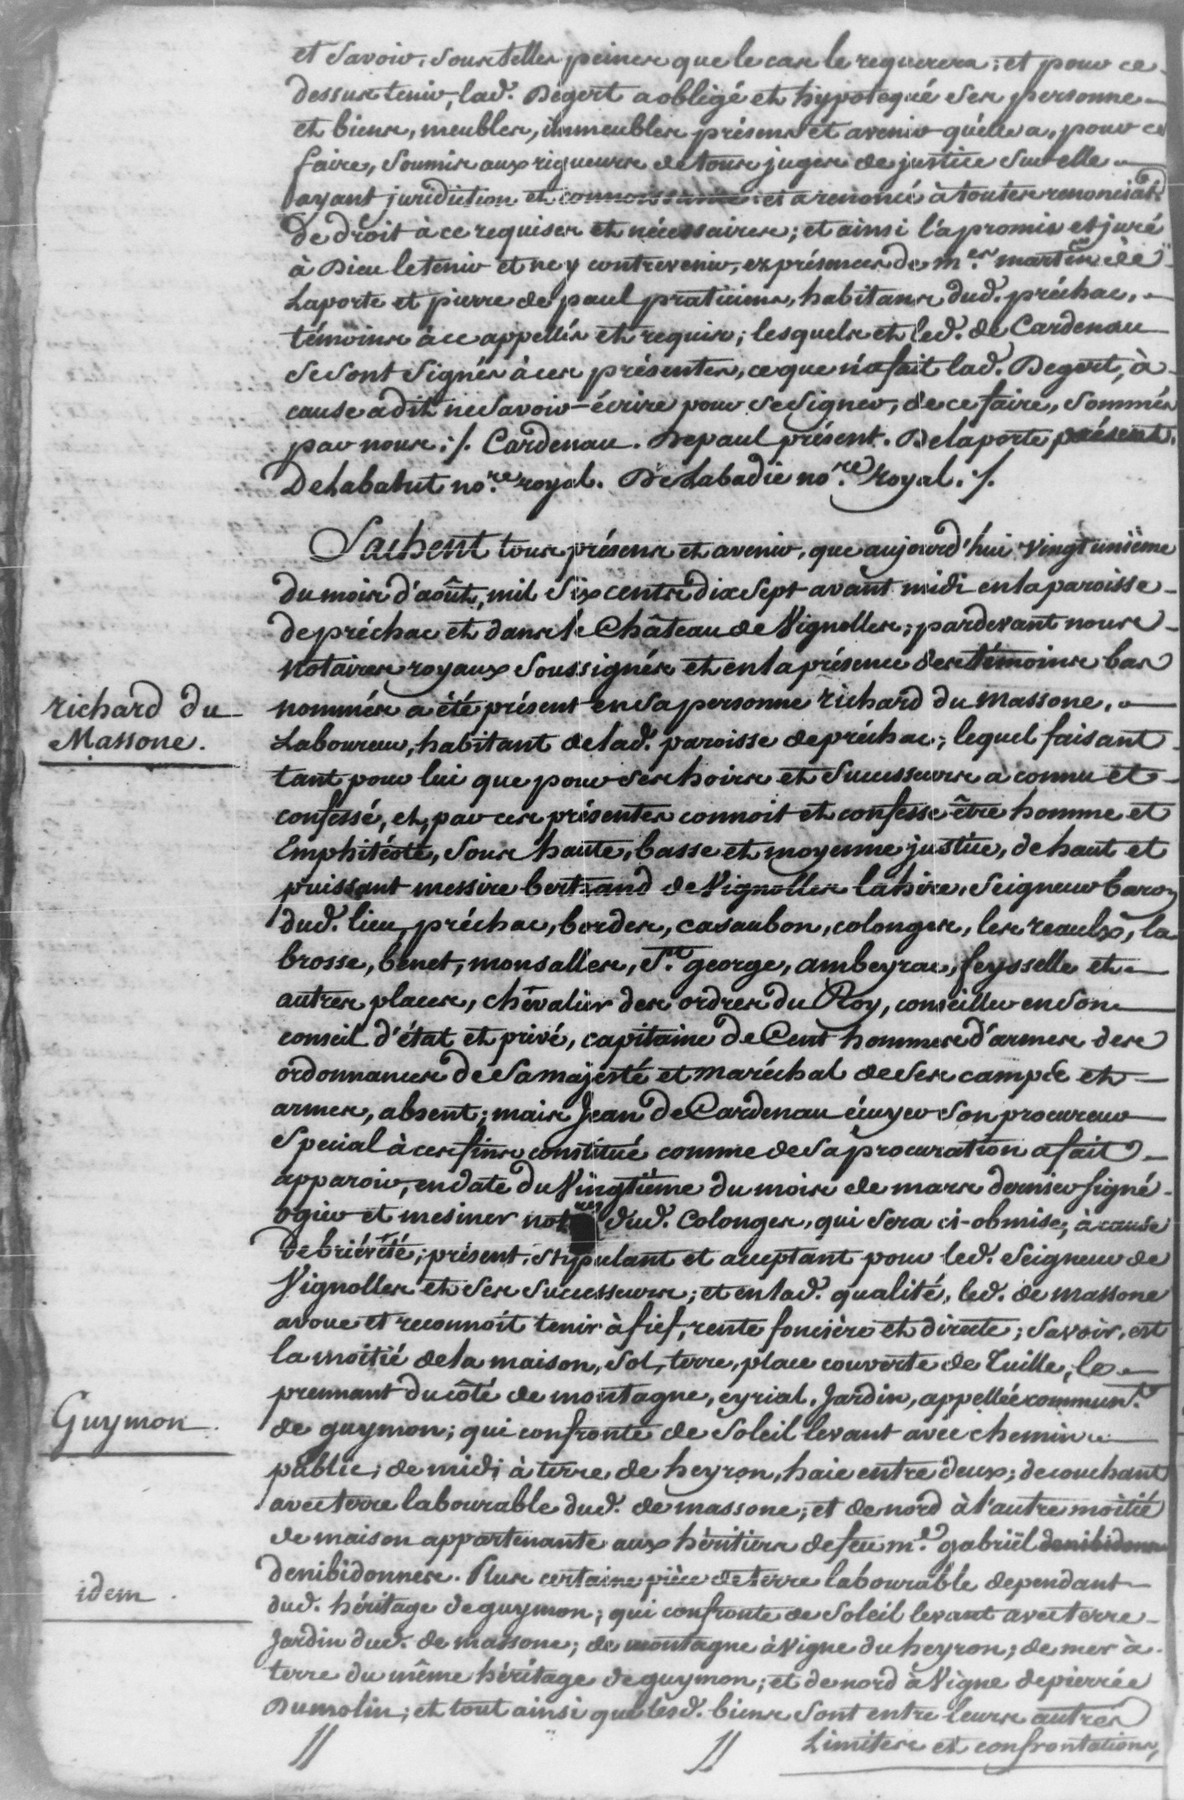 et savoir, sous telles peines que le cas le requerera; et pour ce
dessus tenir, lad. Degert a obligé et hypotequé ses personne
et biens, meubles, immeubles présens et avenir qu'elle a, pour ce
faire, soumis aux rigueurs de tous juges de justice sur elle
ayant juridiction et connoissance; et a renoncé à toutes renonciat.
de droit à ce requises et nécessaires; et ainsi l'a promis et juré
à Dieu le tenir et n'y contrevenir, ez présences de m.es martin de
Laporte et pierre de paul praticiens, habitans dud. préchac,
témoins à ce appellés et requis; lesquels et led. de Cardenau
se sont signés à ces présentes, ce que n'a fait lad. Degert, à
cause a dit ne savoir écrire pour se signer, de ce faire, sommés
par nous ./. Cardenau. Depaul présent. Delaporte présent.
Delabahut no.re royal. De Labadie no.re royal ./.
Sachent tous présens et avenir, que aujourd'hui vingt unième
du mois d'août, mil six cents dix sept avant midi en la paroisse
de préchac et dans le Château de Vignolles; pardevant nous
notaires royaux soussignés et en la présence des témoins bas
nommés a été présent en sa personne richard du massone,
richard du
Massone.
Laboureur, habitant de lad. paroisse de préchac; lequel faisant
tant pour lui que pour ses hoirs et successeurs a connu et
confessé, et, par ces présentes connoit et confesse être homme et
Emphitéote, sous haute, basse et moyenne justice, de haut et
puissant messire bertrand de Vignolles lahire, seigneur baron
dud. lieu, préchac, bordes, casaubon, colonges, les reaulx, la
brosse, benet, monsalles, S.t george, ambeyrac, feysselle et
autres places, chevalier des ordres du Roy, conseiller en son
conseil d'état et privé, capitaine de Cent hommes d'armes des
ordonnances de sa majesté et maréchal de ses camps et
armes, absent; mais Jean de Cardenau écuyer son procureur
spécial à ces fins constitué comme de sa procuration a fait
apparoir, en date du vingtième du mois de mars dernier signé
ogier et mesiner not.res dud. Colonges, qui sera ci-obmise, à cause
de briéveté; présent, stipulant et acceptant pour led. seigneur de
Vignolles et ses successeurs; et en lad. qualité, led. de massone
avoue et reconnoit tenir à fief, rente foncière et directe; savoir, est
la moitié de la maison, sol, terre, place couverte de Tuille, le
prennant du côté de montagne, eyrial, Jardin, appellée commun.t
Guymon.
de guymon; qui confronte de soleil levant avec chemin
public; de midi à terre de heyron, haie entre deux; de couchant
avec terre labourable dud. de massone; et de nord à l'autre moitié
de maison appartenante aux héritiers de feu m.e gabriël denibidonnes
denibidonnes. Plus certaine pièce de terre labourable dependant
idem.
dud. héritage de guymon; qui confronte de soleil levant avec terre
Jardin dud. de massone; de montagne à vigne du heyron; de mer à
terre du même héritage de guymon; et de nord à vigne de pierrée
Dumolin; et tout ainsi que lesd. biens sont entre leurs autres
// // Limites et confrontations,